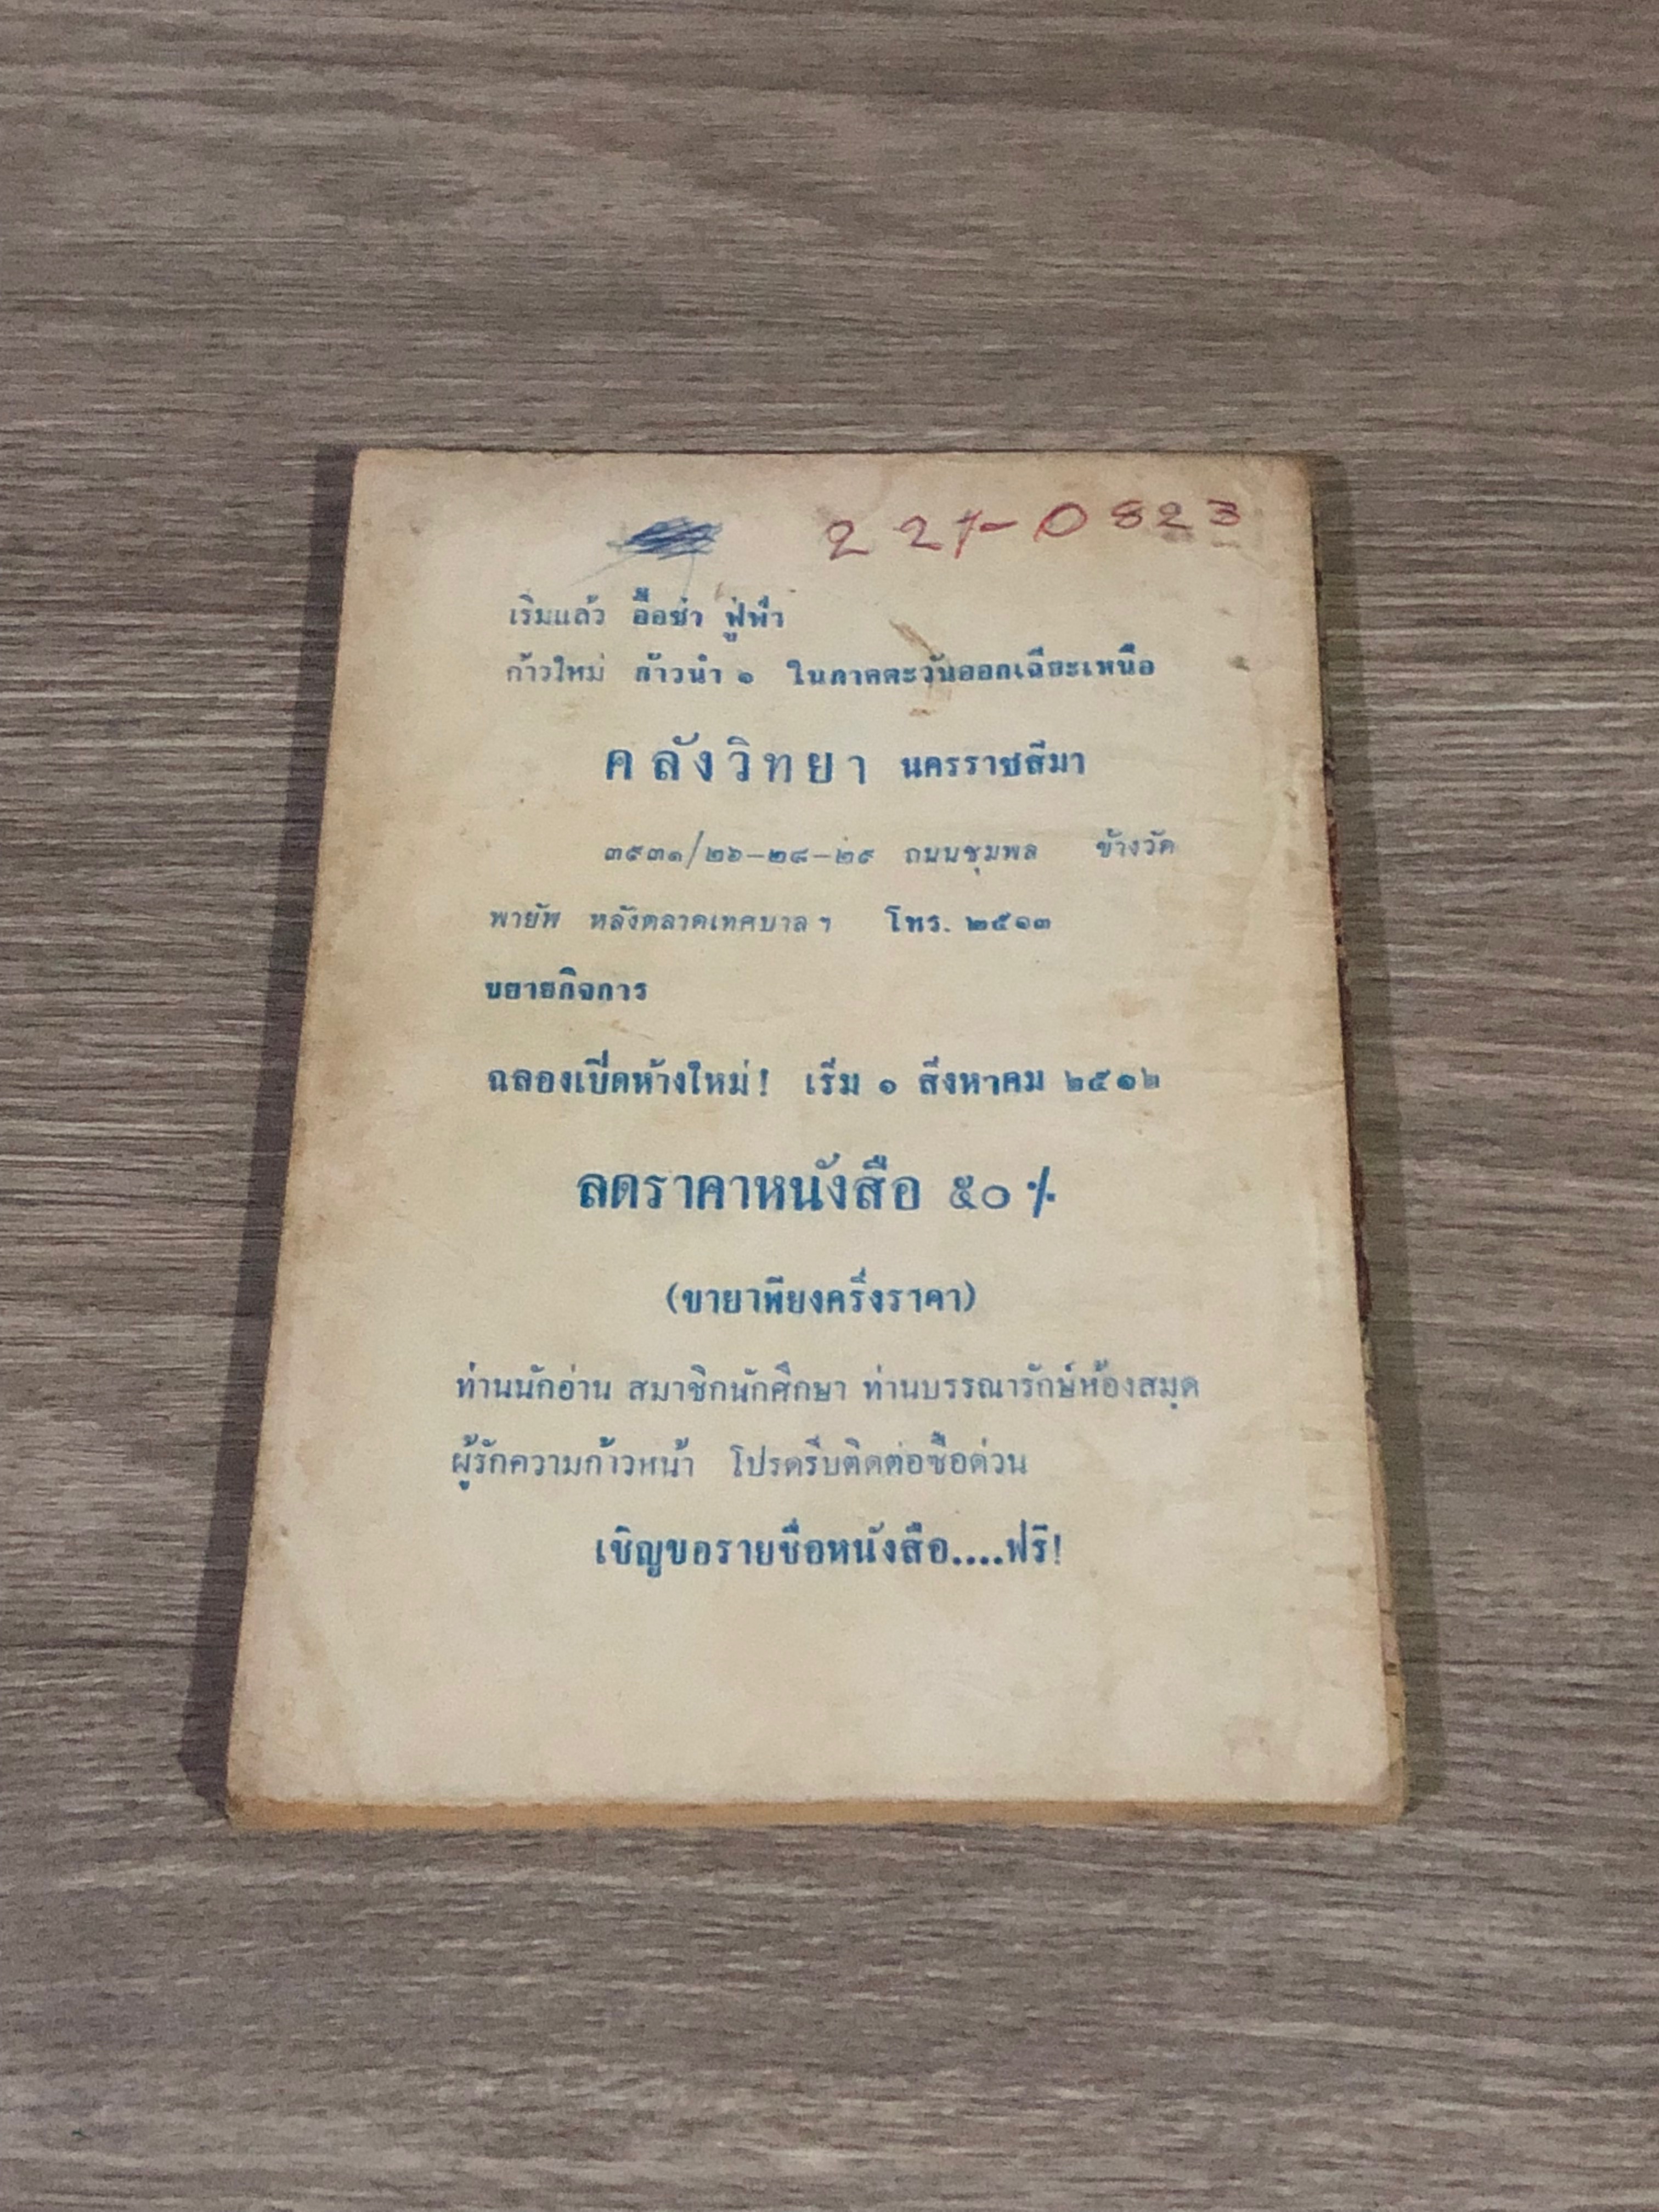 221-0823
เริ่มแล้ว อื้อซ่า ฟู่ฟ่า
ก้าวใหม่ ก้าวนำ ๑ ในภาคตะวันออกเฉียงเหนือ
คลังวิทยา นครราชสีมา
๓๙๓๑/๒๖-๒๘-๒๙ ถนนชุมพล ข้างวัด
พายัพ หลังตลาดเทศบาลฯ โทร. ๒๕๑๓
ขยายกิจการ
ฉลองเปิดห้างใหม่! เริ่ม ๑ สิงหาคม ๒๕๑๒
ลดราคาหนังสือ ๕๐ ٪
(ขายาพียงครึ่งราคา)
ท่านนักอ่าน สมาชิกนักศึกษา ท่านบรรณารักษ์ห้องสมุด
ผู้รักความก้าวหน้า โปรดรีบติดต่อซื้อด่วน
เชิญขอรายชื่อหนังสือ....ฟรี!